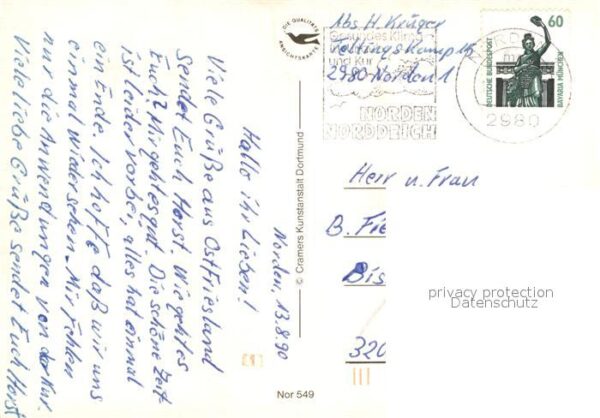 Norden, 13.8.90
Hallo ihr Lieben!
Viele Grüße aus Ostfriesland
sendet Euch Horst. Wie geht es
Euch? Mir geht es gut. Die schöne Zeit
ist leider vorbei, alles hat einmal
ein Ende. Ich hoffe daß wir uns
einmal wiedersehen. Mir fehlen
nur die Anwendungen von der Kur.
Viele liebe Grüße sendet Euch Horst
DIE QUALITÄTS
ANSICHTSKARTE
© Cramers Kunstanstalt Dortmund
Nor 549
Abs. H. Krüger
Feltingskamp
2980 Norden 1
Gesundes Klima
und Kur
NORDEN
NORDDEICH
2980
60
DEUTSCHE BUNDESPOST
BAVARIA MÜNCHEN
Herr u. Frau
B. Fie
Bis
320
privacy protection
Datenschutz